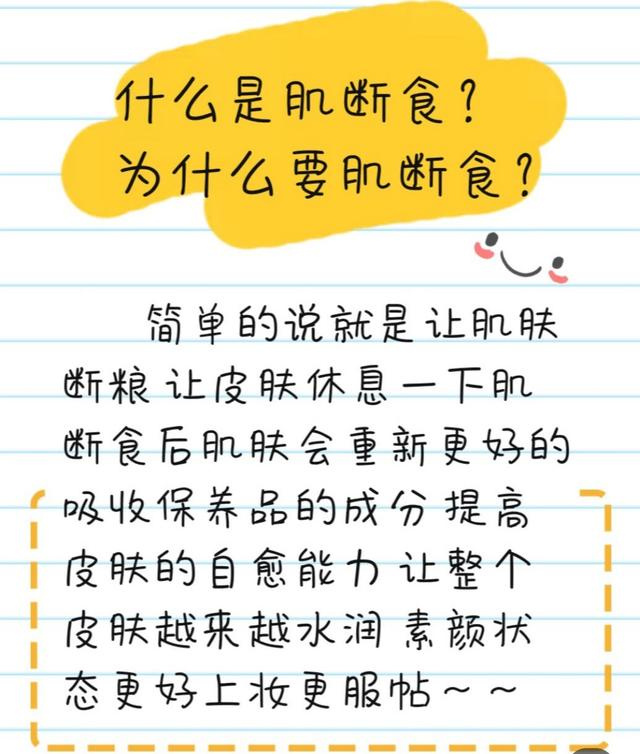 什么是肌断食？
为什么要肌断食？
简单的说就是让肌肤
断粮 让皮肤休息一下肌
断食后肌肤会重新更好的
吸收保养品的成分 提高
皮肤的自愈能力 让整个
皮肤越来越水润 素颜状
态更好上妆更服帖～～